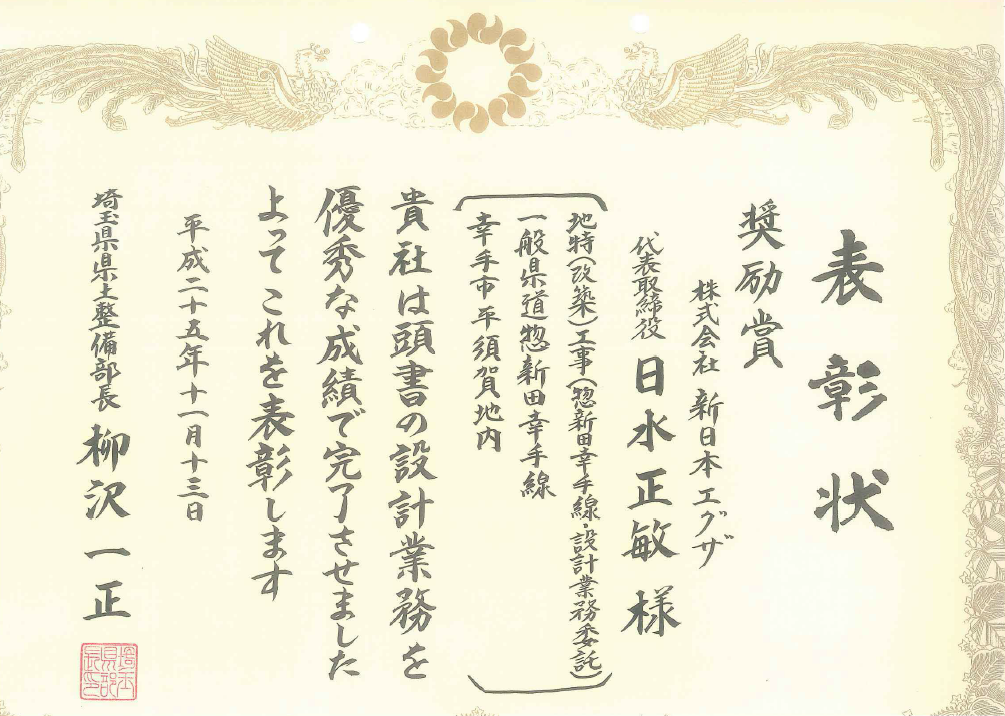 表彰状
奨励賞
株式会社 新日本エグザ
代表取締役 日水正敏 様
地特(改築)工事(惣新田幸手線・設計業務委託)
一般県道惣新田幸手線
幸手市平須賀地内
貴社は頭書の設計業務を
優秀な成績で完了させました
よってこれを表彰します
平成二十五年十一月十三日
埼玉県県土整備部長 柳沢一正